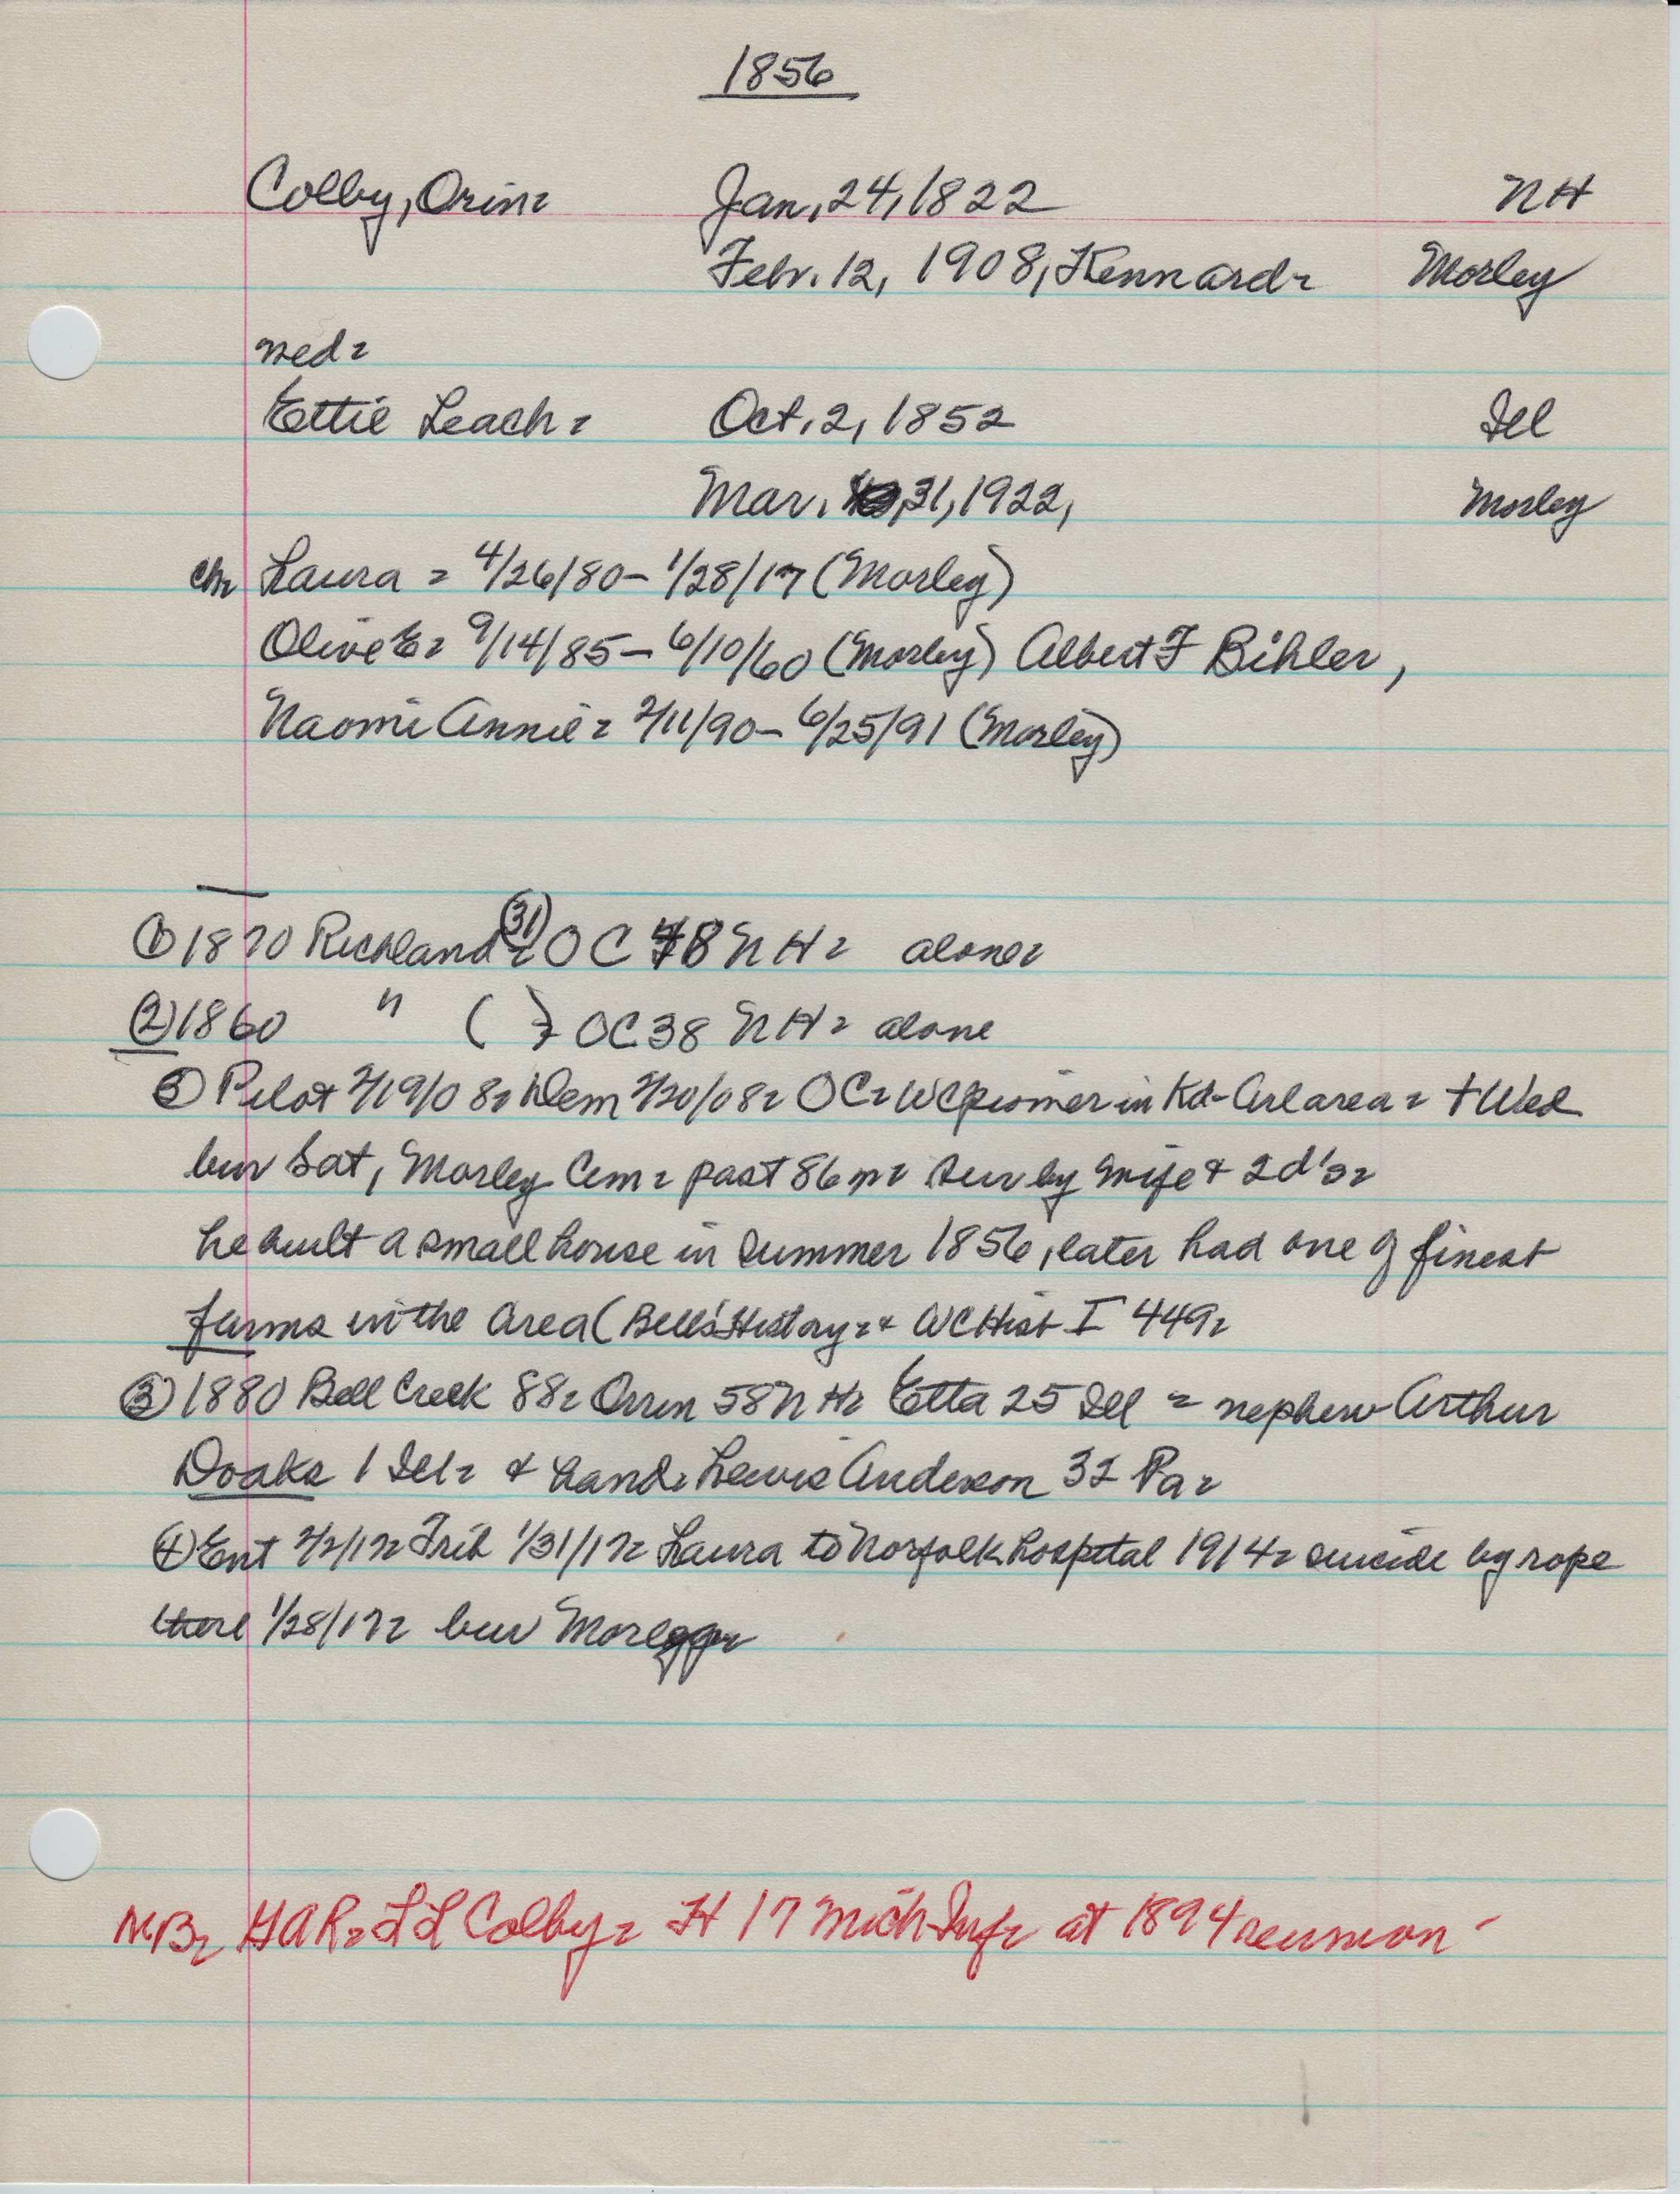 1856
Colby, Orin= Jan, 24, 1822 NH
Febr. 12, 1908, Kennard= Morley
med=
Ettie Leach= Oct, 2, 1852 Ill
Mar. 31, 1922, Morley
ch= Laura = 4/26/80 - 1/28/17 (Morley)
Olive E= 9/14/85 - 6/10/60 (Morley) Albert F Bihler,
Naomi Annie= 2/11/90 - 6/25/91 (Morley)
① 1870 Richland (31)= OC 48 NH= alone=
② 1860 " ( )= OC 38 NH= alone
⑤ Pilot 2/19/08= Dem 2/20/08= OC= WC pioneer in Kd-Arl area= + Wed
bur Sat, Morley Cem= past 86 = sur by wife + 2 d's=
he built a small house in summer 1856, later had one of finest
farms in the area (Bell's History= + WC Hist I 449=
③ 1880 Bell Creek 88= Orren 58 NH= Etta 25 Ill = nephew Arthur
Doaks 1 Ill= + hand= Lewis Anderson 32 Pa=
④ Ent 2/2/17= Trib 1/31/17= Laura to Norfolk hospital 1914= suicide by rope
there 1/28/17= bur
NB= GAR= L L Colby= H 17 Mich Inf= at 1894 reunion -